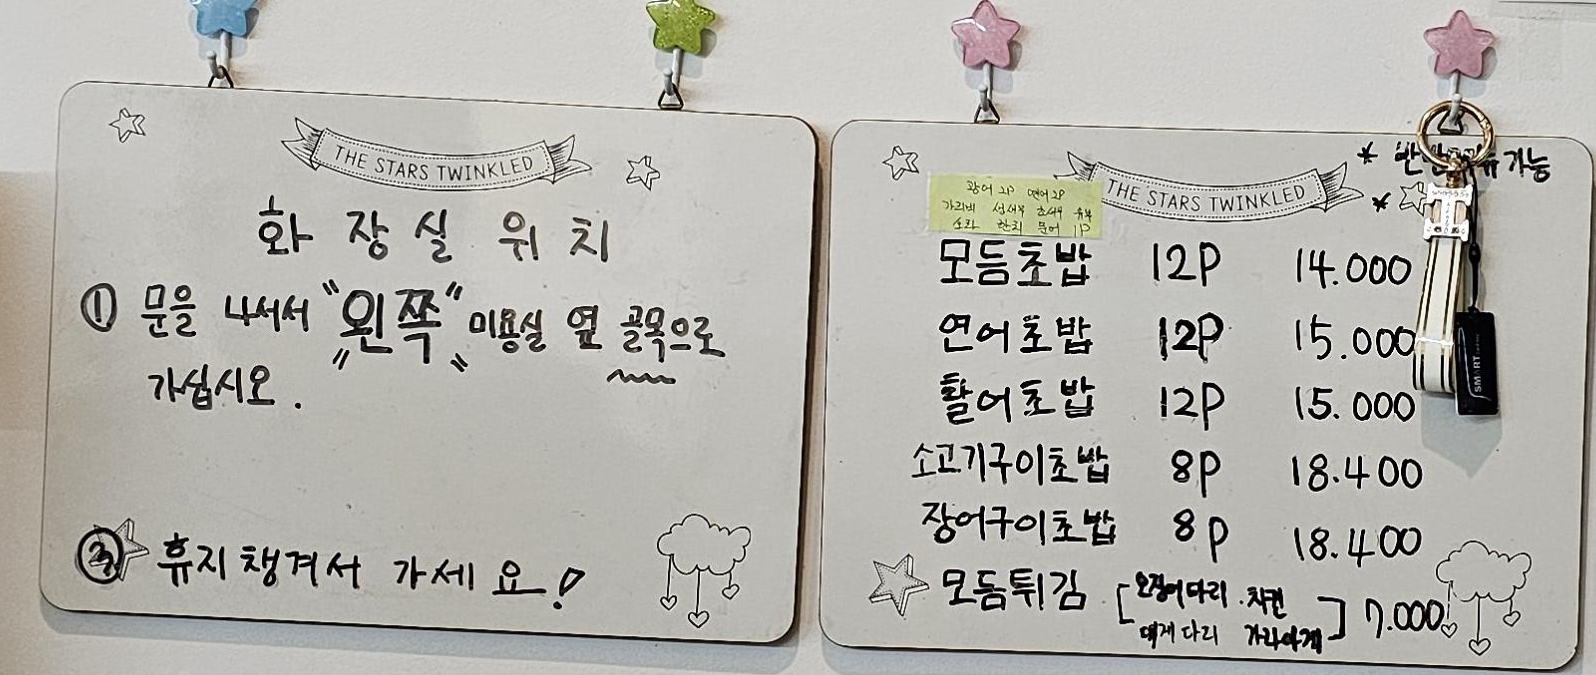 THE STARS TWINKLED
화장실 위치
① 문을 나서서 "왼쪽" 미용실 옆 골목으로
가십시오.
휴지 챙겨서 가세요!
THE STARS TWINKLED
* 가능
*
광어 2P 연어 2P
가리비 초새우 유부
소라 한치 문어 1P
모듬초밥 12P 14.000
연어초밥 12P 15.000
활어초밥 12P 15.000
소고기구이초밥 8P 18.400
장어구이초밥 8P 18.400
모듬튀김 [오징어다리 · 치킨
대게다리 가라아게] 7.000
SMART